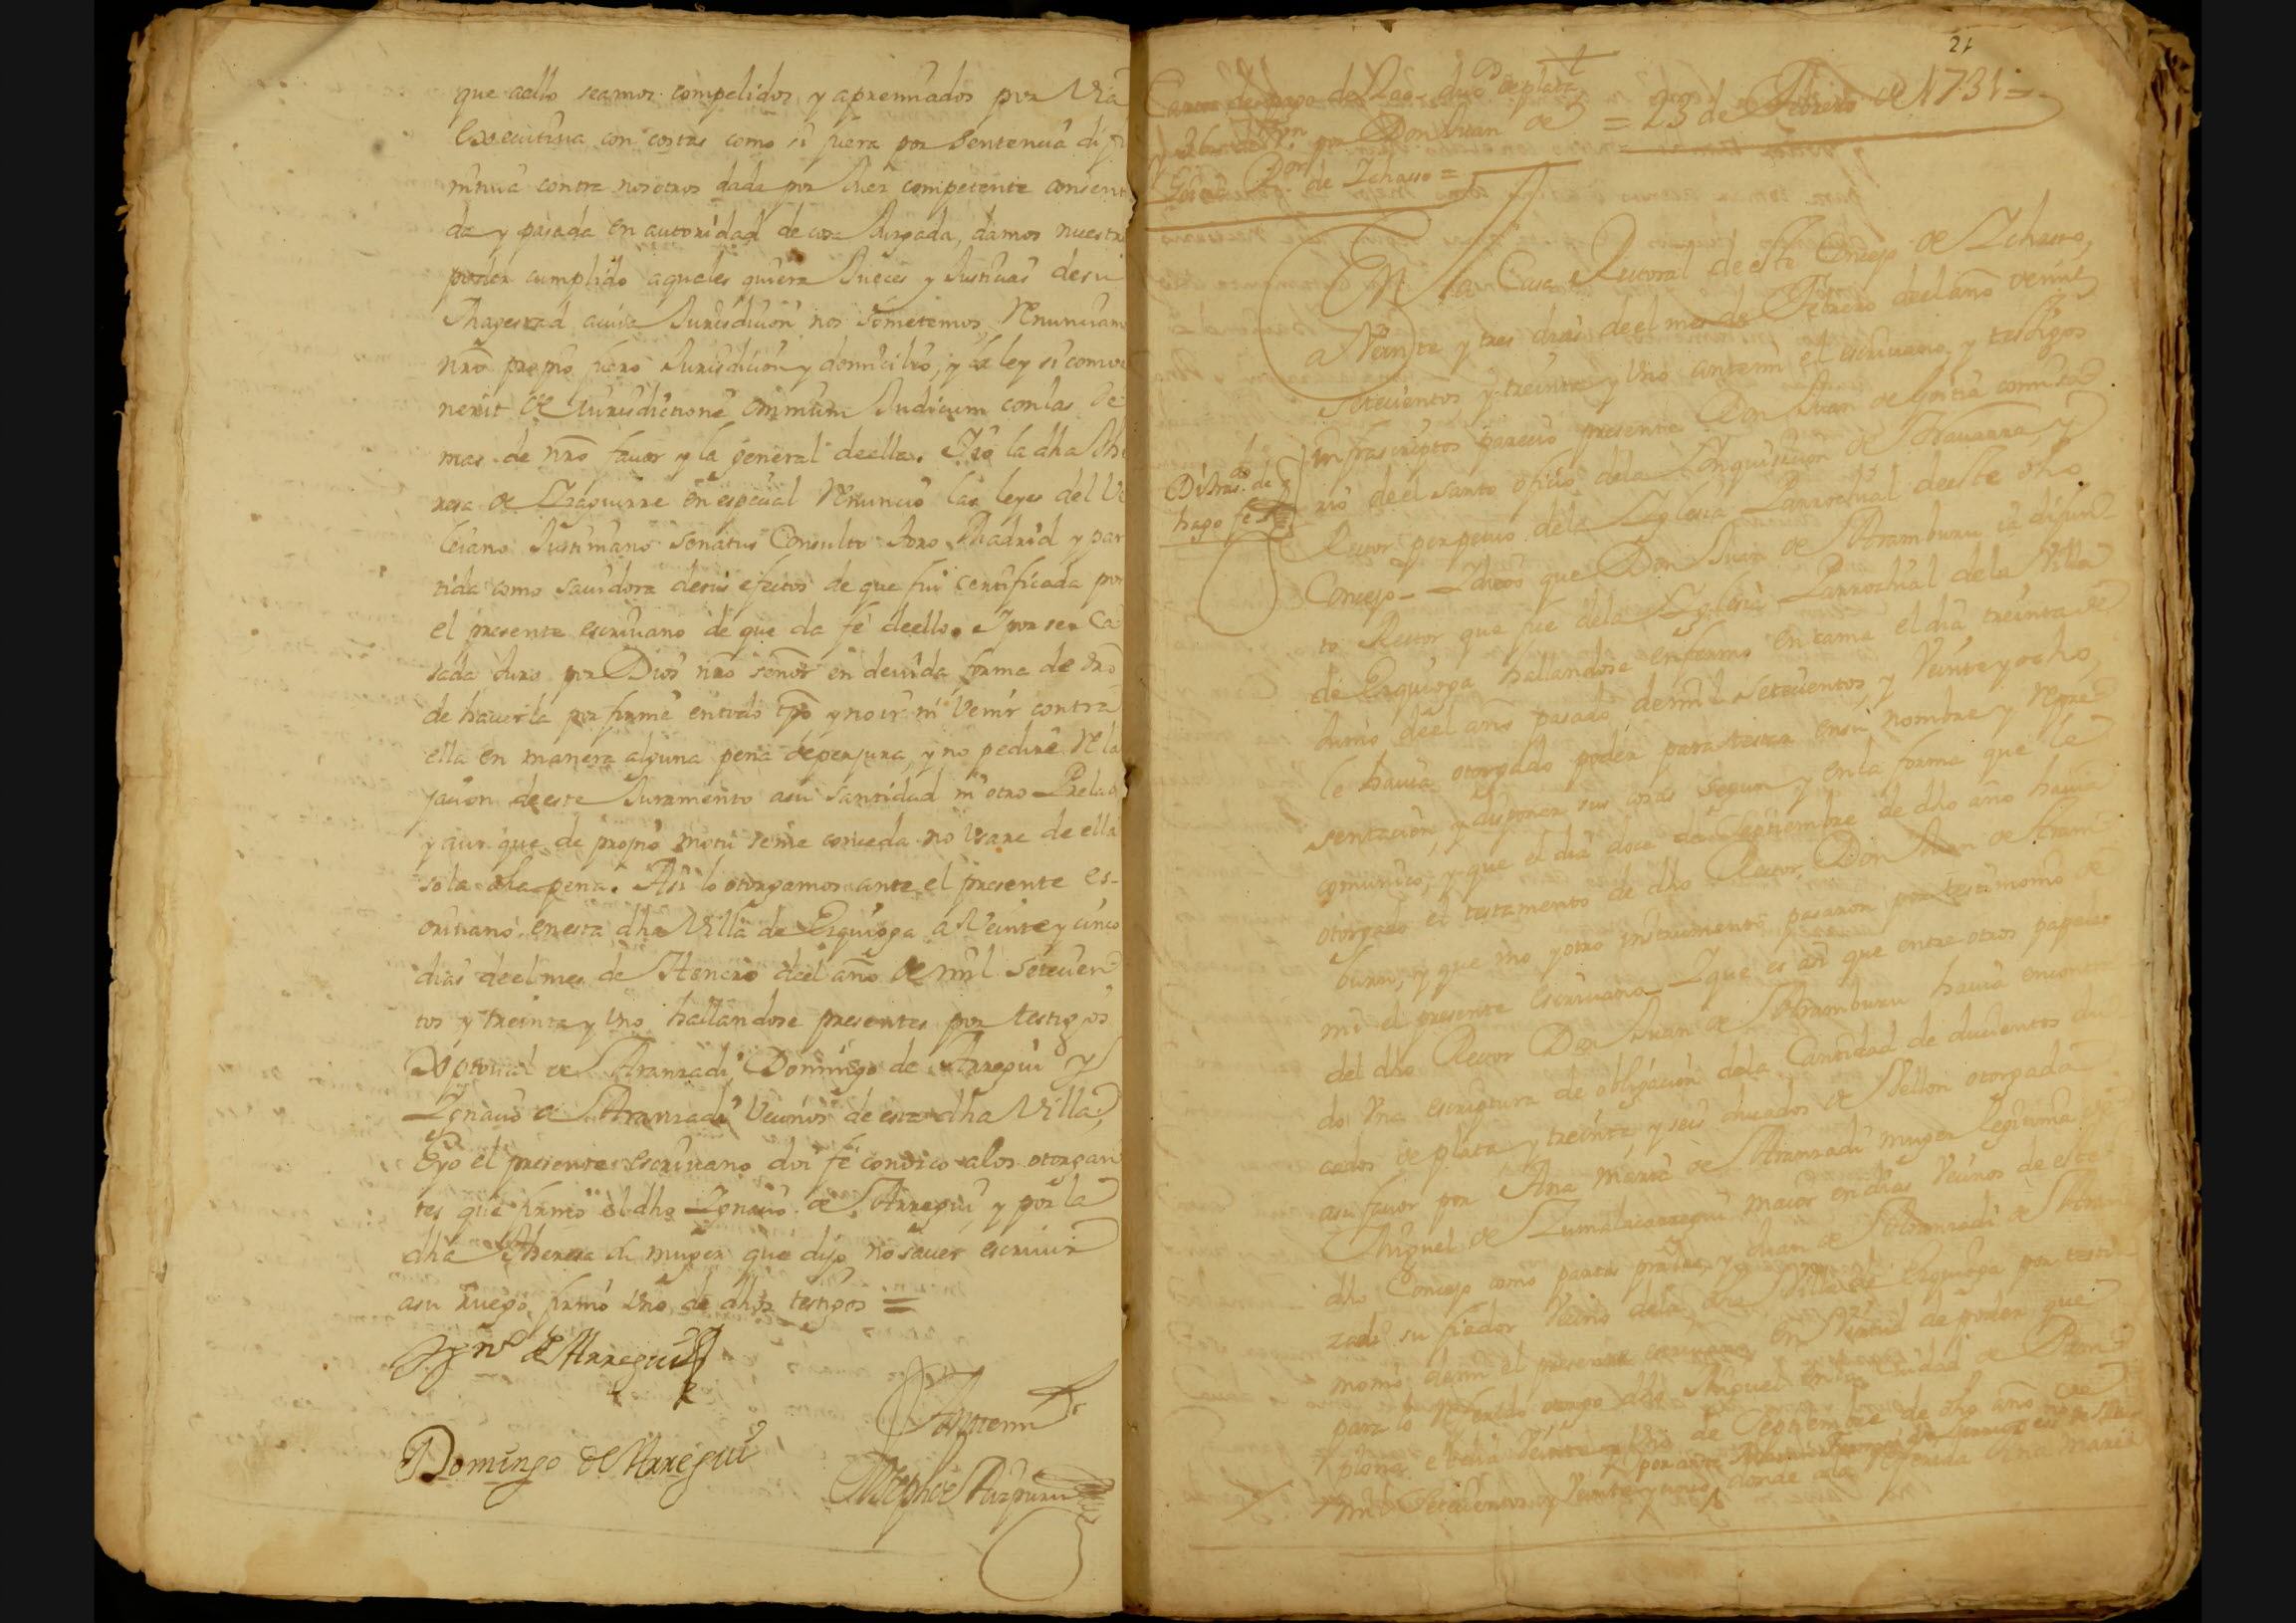 que aello seamos compelidos y apremiados por via
executiva con costas como si fuera por sentencia difi
nitiva contra nosotros dada por Juez competente consenti
da y pasada en autoridad de cosa Juzgada, damos nuestro
poder cumplido a quales quiera Jueces y Justicias de su
Magestad a cuia Jurisdicion nos sometemos Renunciam
nrō propio fuero Jurisdicion y domicilio, y la ley si convē
nerit de Jurisdictione omnium Judicum con las de
mas de nrō favor y la general de ella. Y io la dha The
resa de Yzaguirre en especial Renuncio las leyes del Ve
leiano Justiniano Senatus Consulto Toro Madrid y par
tida como savidora de sus efectos de que fui certificada por
el presente escrivano de que da fé de ello. Y por ser Ca
sada Juro por Dios nrō señor en devida forma de drō
de haverla por firme en todo tpō y no ir ni venir contra
ella en manera alguna pena de perjura, y no pedire Rela
jacion de este Juramento a su santidad ni otro Prelado
y aun que de propio motu se me conceda no usare de ella
so la dha pena. Asi lo otorgamos ante el presente es-
crivano en esta dha Villa de Ezquioga a Veinte y cinco
dias de el mes de Henero de el año de mil setecien
tos y treinta y uno hallandose presentes por testigos
Xptoval de Aranzadi, Domingo de Arregui y
Ygnacio de Aranzadi Vecinos de esta dha Villa,
Eyo el presente escrivano doi fé conozco alos otorgan
tes que firmo el dho Ygnacio de Arregui, y por la
dha Theresa su muger que dijo no saver escrivir
asu ruego firmó uno de dhos testigos =
Ygnº de Arregui
Antemi
Domingo de Arregui
21
Carta de pago de 200 duºs de plata
= 23 de Febrero de 1731 =
por Don Juan de
Goitia Ror de Ychasso =
En la Casa Rectoral de este Concejo de Ychasso,
a Veinte y tres dias de el mes de Febrero de el año de mil
setecientos y treinta y uno antemi el escrivano y testigos
infrascriptos parecio presente Don Juan de Goitia comisa
rio de el santo oficio de la Ynquisicion de Navarra, y
Rector perpetuo de la Yglesia Parrochial de este dho
hago fé
Concejo. Y dijo que Don Juan de Aramburu ia difun
to Rector que fue de la Yglesia Parrochial de la Villa
de Ezquioga hallandose enfermo en cama el dia treinta de
Junio de el año pasado de mil setecientos y Veinte y ocho,
le havia otorgado poder para testar en su nombre y Repre
sentacion, y disponer sus cosas segun y en la forma que le
comunico, y que el dia doce de Septiembre de dho año havia
otorgado el testamento de dho Rector Don Juan de Aram
buru, y que uno y otro instrumento pasaron por testimonio de
mi el presente escrivano. Y que es asi que entre otros papeles
del dho Rector Don Juan de Aramburu havia encontra
do una escriptura de obligacion de la Cantidad de ducientos du
cados de plata y treinta y seis ducados de Vellon otorgada
asu favor por Ana Maria de Aranzadi muger legitima de
Miguel de Zumalacarregui maior en dias Vecinos de este
dho Concejo como parte prinzl. y Juan de Aranzadi de Aran
zadi su fiador Vecino de la dha Villa de Ezquioga por testi
monio de mi el presente escrivano en Virtud de poder que
para lo Referido otorgo dho Miguel en la Ciudad de Pam
plona e dia Veinte y uno de Septiembre de dho año de
mil setecientos y Veinte y cinco, donde a la Referida Ana Maria